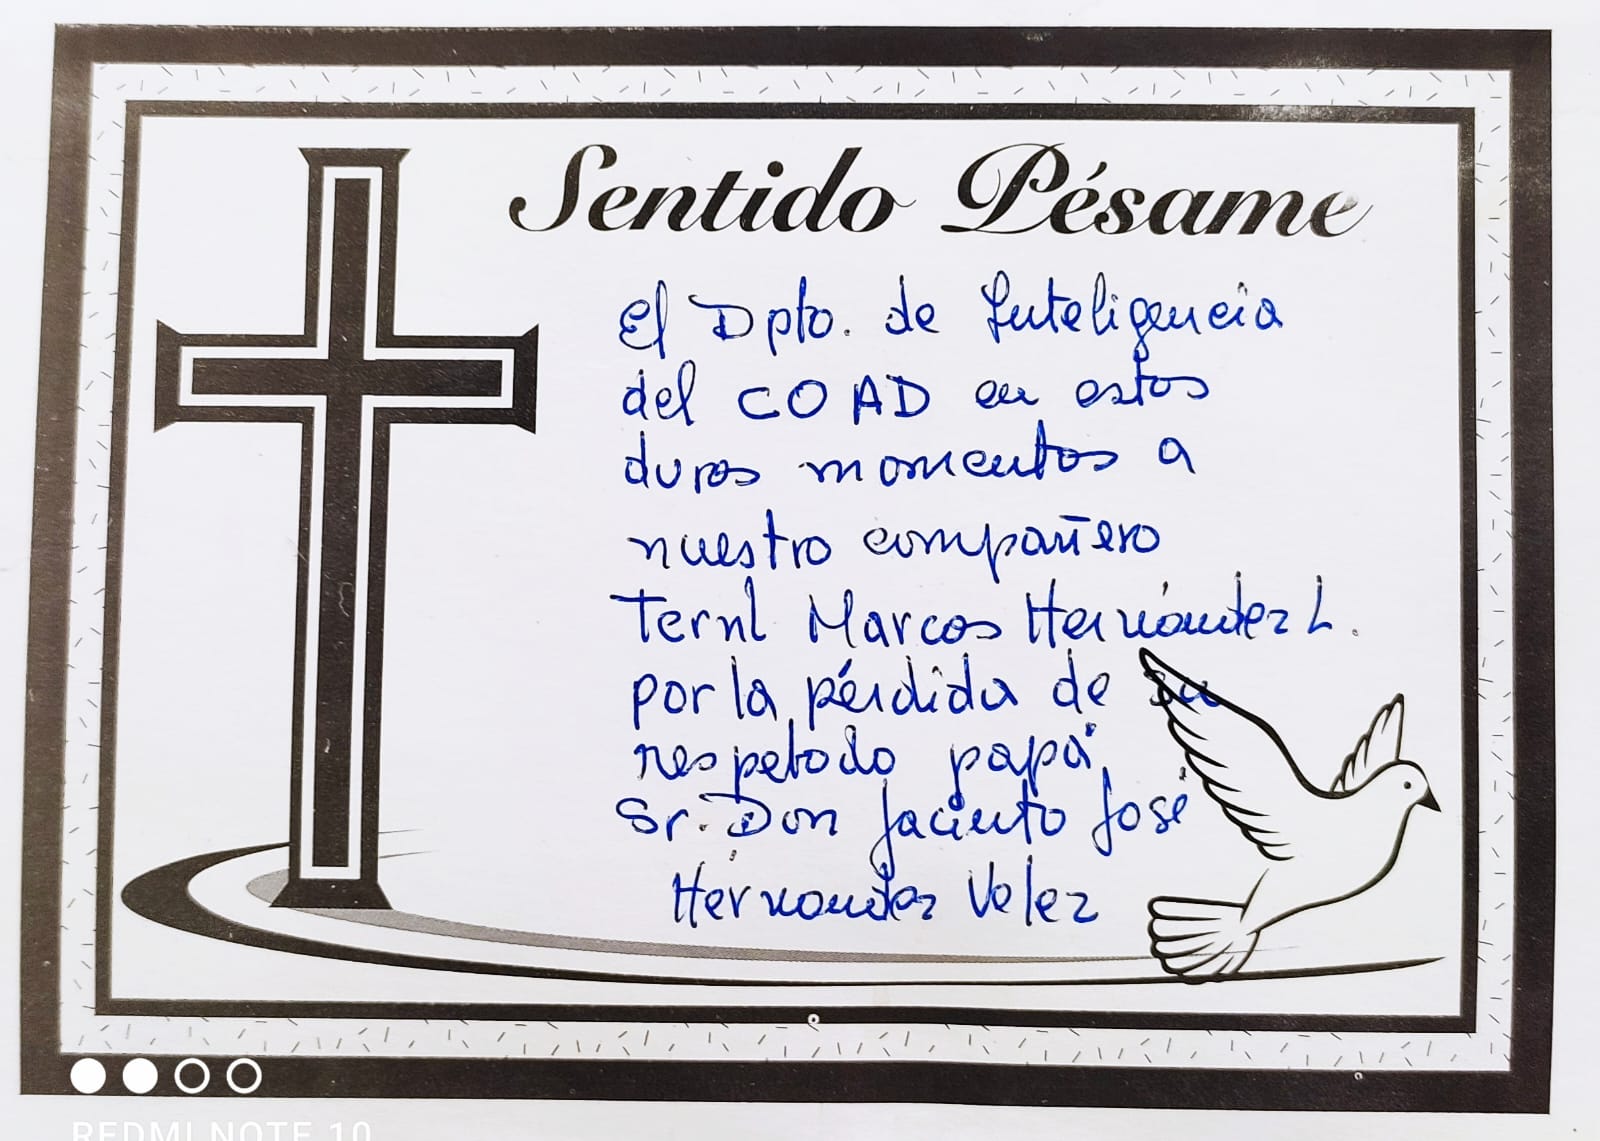 Sentido Pésame
El Dpto. de Inteligencia
del COAD en estos
duros momentos a
nuestro compañero
Ternl Marcos Hernández L.
por la pérdida de su
respetado papá,
Sr. Don Jacinto José
Hernandez Velez
REDMI NOTE 10